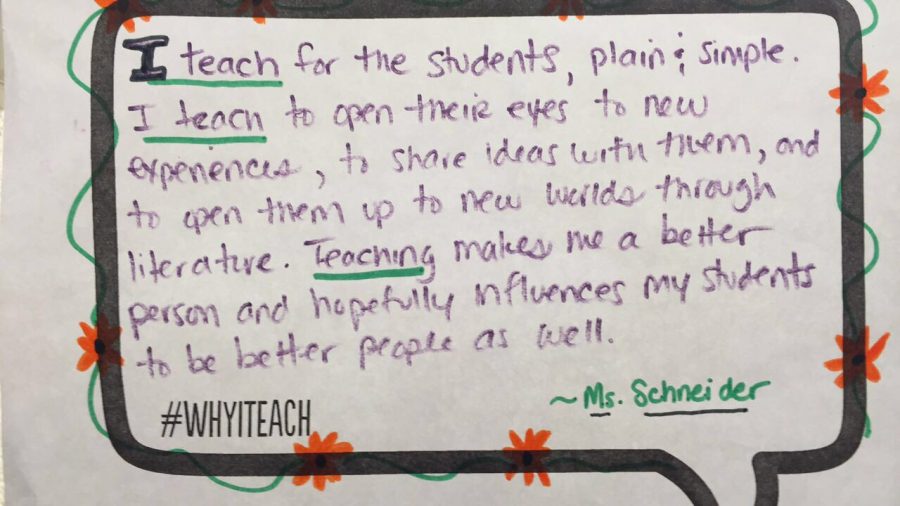 I teach for the students, plain & simple.
I teach to open their eyes to new
experiences, to share ideas with them, and
to open them up to new worlds through
literature. Teaching makes me a better
person and hopefully influences my students
to be better people as well.
~Ms. Schneider
#WHYITEACH